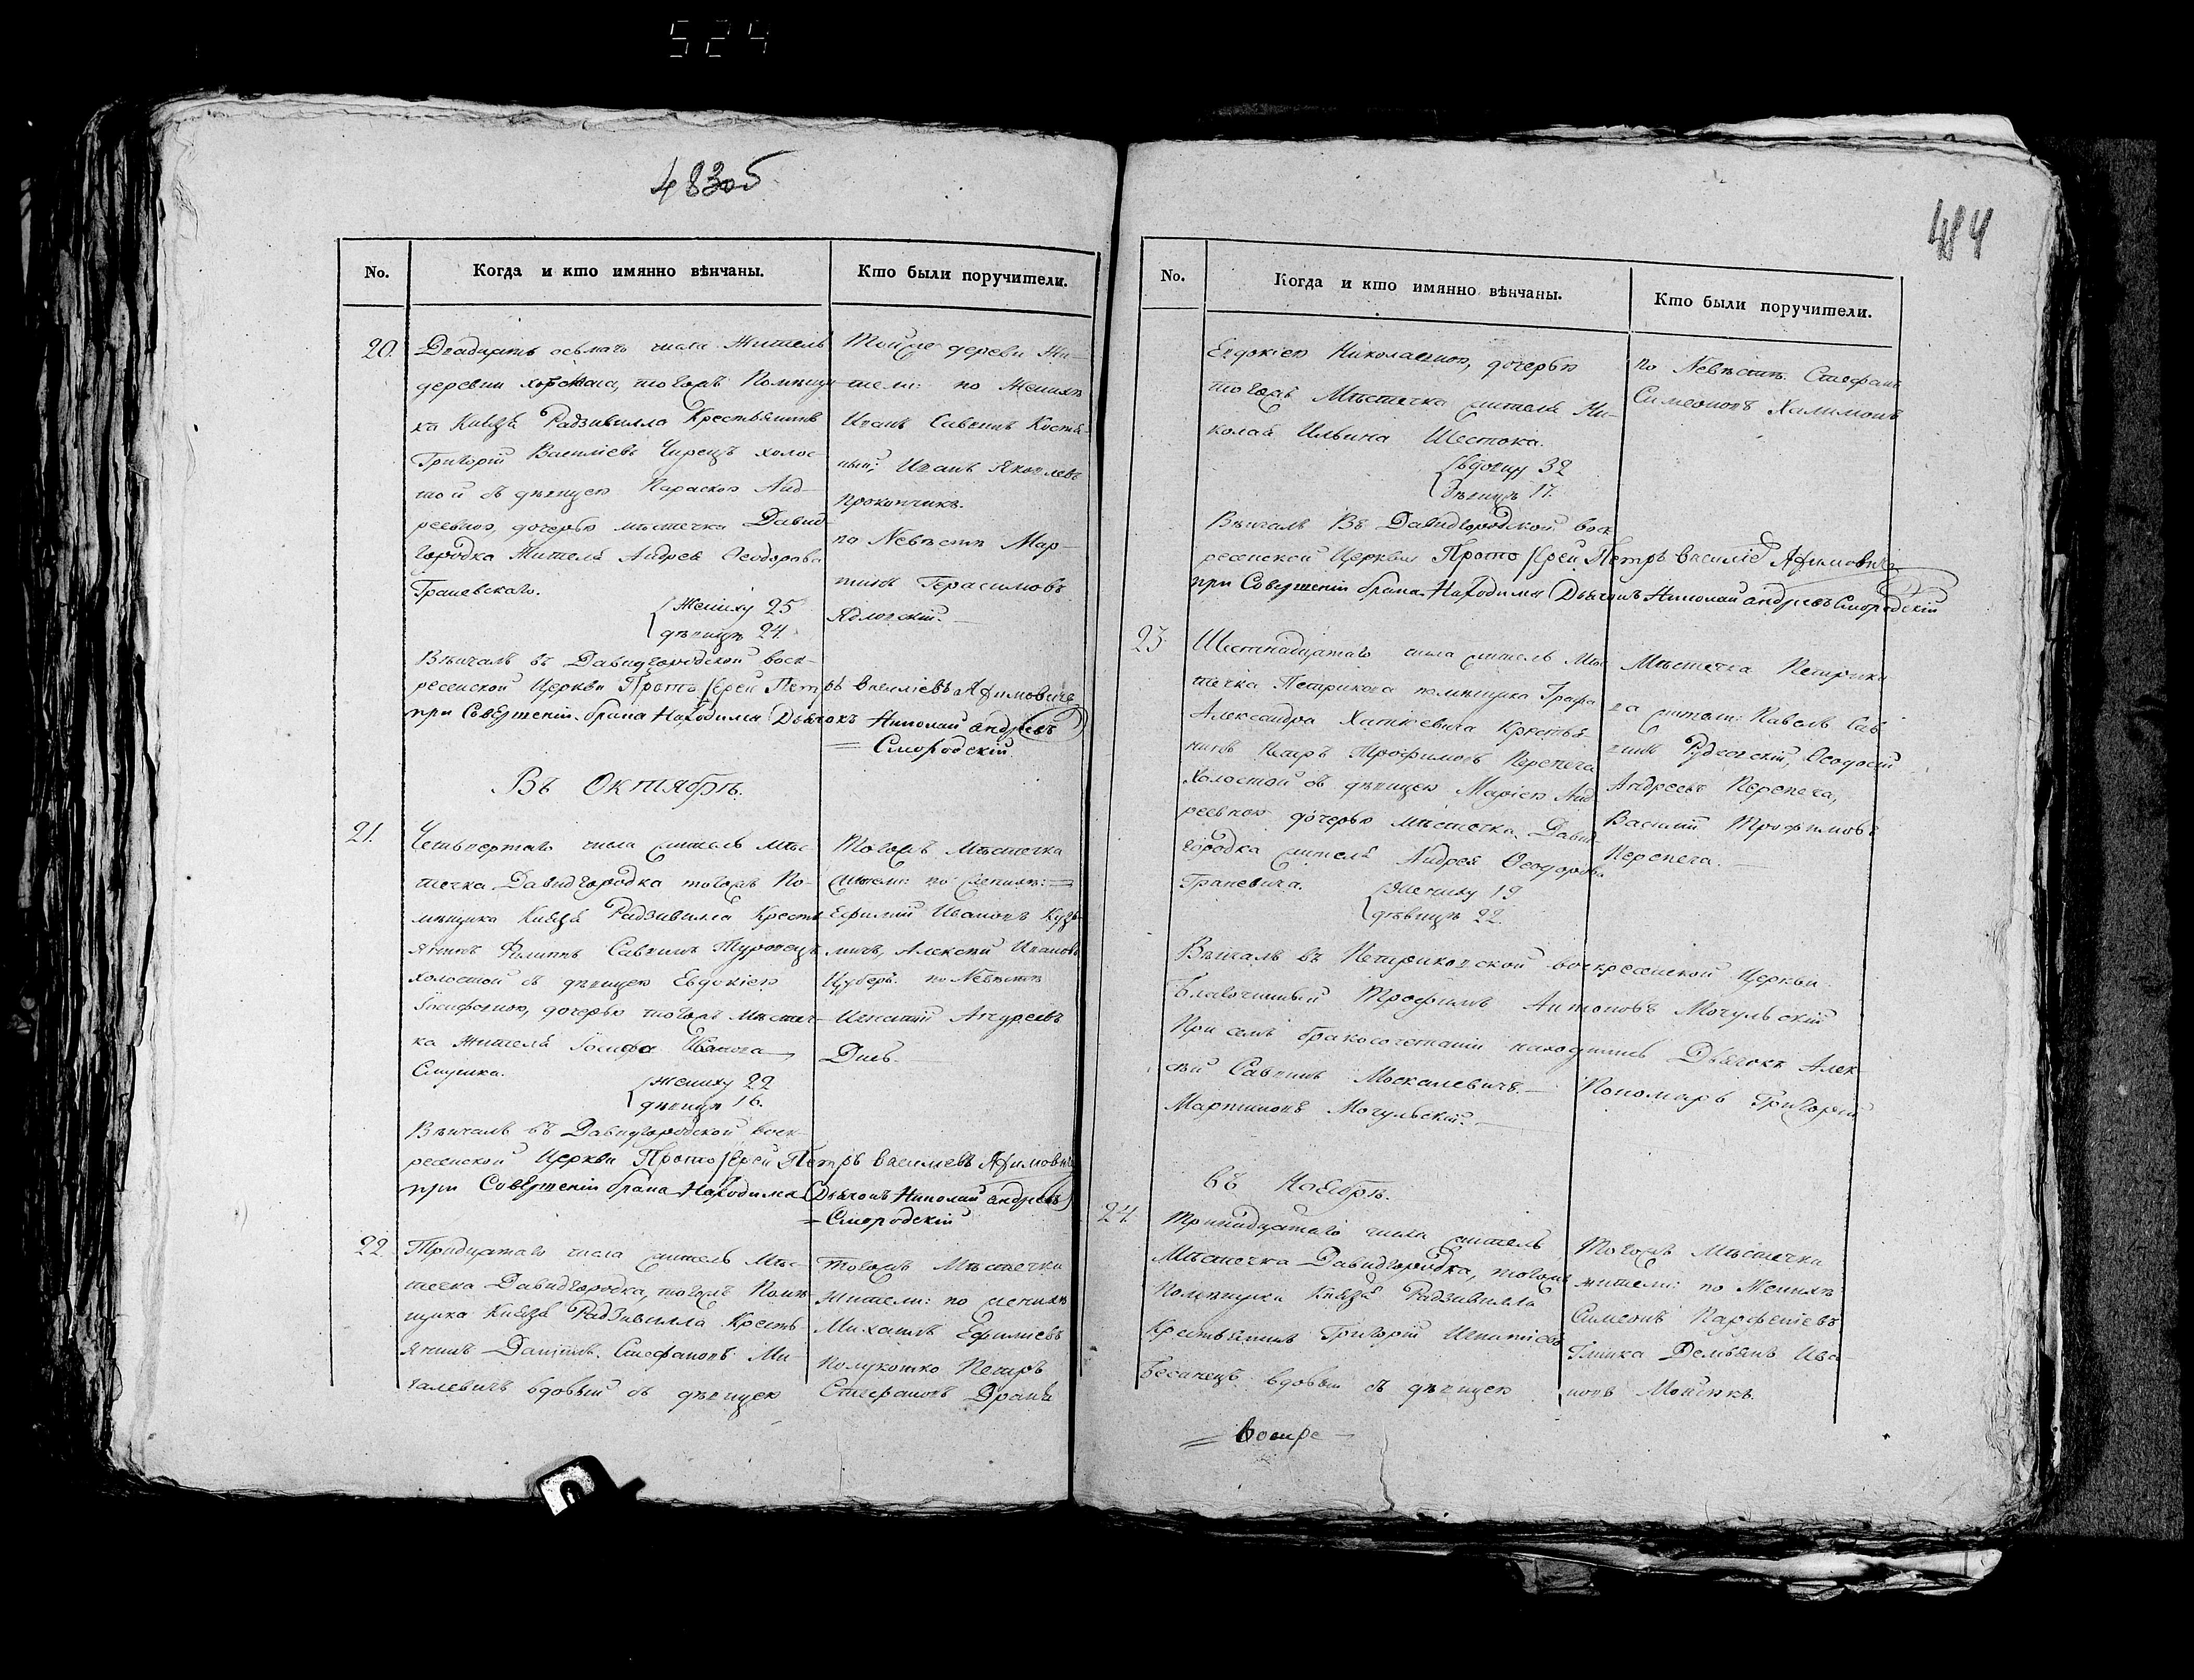 524
483об
No.
Когда и кто имянно вѣнчаны.
Кто были поручители.
20.
Двадцать осьмаго числа Житель
деревни Хорска, тогожъ Помѣщи-
ка Князя Радзивилла Крестьянинъ
Григорій Василіевъ Чирецъ холос-
той съ дѣвицею Параскою Анд-
реевною, дочерью мѣстечка Давид-
городка Жителя Андрея Ѳеодорова
Граневскаго.
Жениху 25
дѣвицѣ 24.
Вѣнчалъ въ Давидгородской воск-
ресенской Церкви Прото Іерей Петръ Василіевъ
при Совершеніи брака Находился Дьячокъ Николай Андреевъ
Смородскій
Тойже деревни Жи-
тели: по Женихѣ
Иванъ Саввинъ
Иванъ Яковлевъ
Прокопчикъ.
по Невѣстѣ Мар-
тинъ Герасимовъ
Въ Октябрѣ.
21.
Четвертаго числа житель мѣс-
течка Давидгородка тогожъ По-
мѣщика Князя Радзивилла Кресть-
янинъ Филиппъ Саввинъ Туровецъ
холостой съ дѣвицею Евдокіею
Іосифовною, дочерью тогожъ Мѣстеч-
ка жителя Іосифа Иванова
Жениху 22
дѣвицѣ 16.
Вѣнчалъ въ Давидгородской воск-
ресенской Церкви Прото Іерей Петръ Василіевъ
при Совершеніи брака Находился Дьячокъ Николай Андреевъ
Смородскій
Тогожъ Мѣстечка
жители: по женихѣ:
Ефимій Ивановъ Кузь-
мичъ, Алексѣй Ивановъ
Цуберъ. по Невѣстѣ
Игнатій Андреевъ
22.
Тридцатаго числа житель Мѣс-
течка Давидгородка, тогожъ Помѣ-
щика Князя Радзивилла Кресть-
янинъ Даніилъ Стефановъ Ми-
галевичъ вдовый съ дѣвицею
Тогожъ Мѣстечка
жители: по женихѣ
Михаилъ Ефиміевъ
Полукошко Петръ
Стефановъ
484
No.
Когда и кто имянно вѣнчаны.
Кто были поручители.
Евдокіею Николаевною, дочерью
тогожъ Мѣстечка жителя Ни-
колая Ильина Шестока.
вдовцу 32
дѣвицѣ 17.
Вѣнчалъ Въ Давидгородской воск-
ресенской Церкви Прото Іерей Петръ Василіевъ
при Совершеніи брака Находился Дьячокъ Николай Андреевъ Смородскій
по Невѣстѣ: Стефанъ
Симеоновъ Халимонъ
23.
Шестнадцатаго числа житель Мѣс-
течка Петрикова помѣщика Графа
Александра Хаткевича Крестья-
нинъ Петръ Трофимовъ Перепеча
Холостой съ дѣвицею Маріею Анд-
реевною дочерью мѣстечка Давид-
городка жителя Андрея Ѳеодорова
Граневича.
Жениху 19
дѣвицѣ 22.
Мѣстечка Петрико-
ва жители: Павелъ Сав-
винъ Ѳеодосій
Андреевъ Перепеча,
Василій Трофимовъ
Перепеча.
Вѣнчалъ въ Петриковской воскресенской Церкви
Благочинный Трофимъ Антоновъ Могульскій
При семъ бракосочетаніи находились Дьячокъ Алек-
сѣй Саввинъ Москалевичъ. Пономарь Григорій
Мартиновъ Могульскій.
въ Ноябрѣ.
24.
Тринадцатаго числа житель
Мѣстечка Давидгородка, тогожъ
Помѣщика Князя Радзивилла
Крестьянинъ Григорій Игнатіевъ
вдовый съ дѣвицею
Тогожъ Мѣстечка
жители: по Женихѣ
Симеонъ Парфеніевъ
Глинка Демьянъ Ива-
новъ